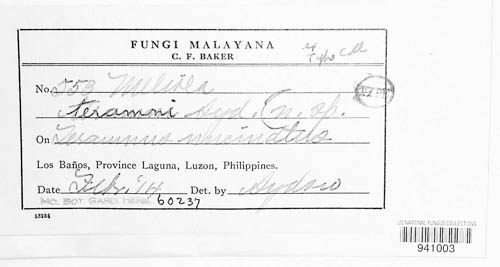 FUNGI MALAYANA
C. F. BAKER
Type Coll.
No. 553 Meliola
teramni Syd. (n. sp.
On Teramnus uncinatus
Los Baños, Province Laguna, Luzon, Philippines.
Date Feb. '14 Det. by Sydow
MO. BOT. GARD. HERB. 60237
53284
US NATIONAL FUNGUS COLLECTIONS
941003